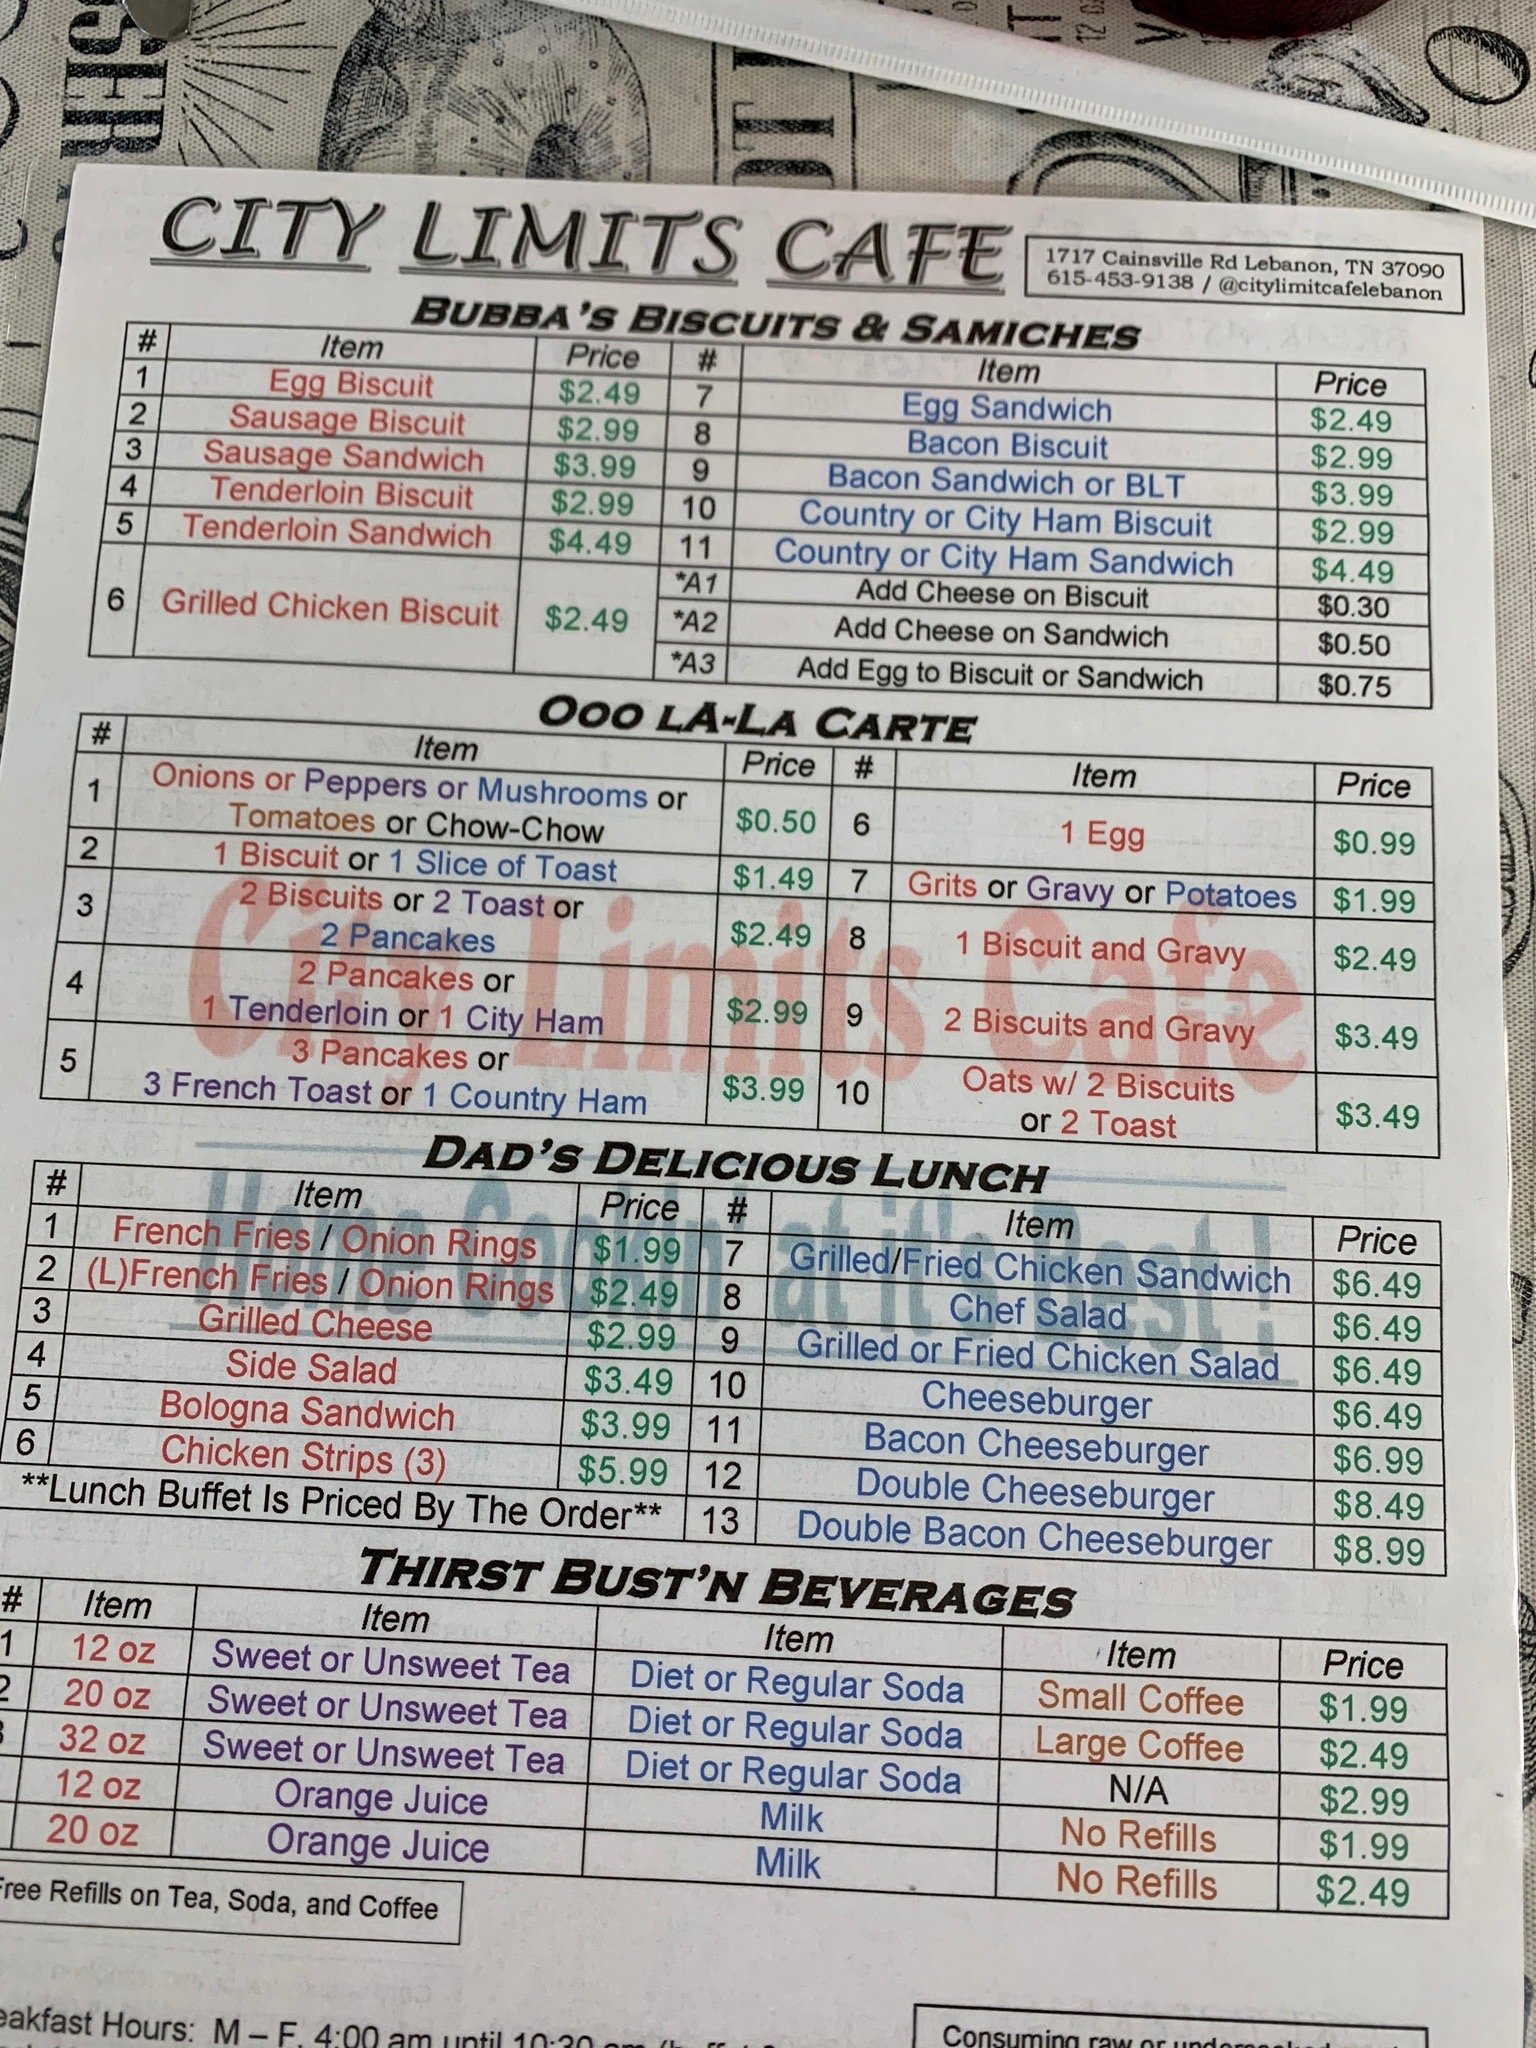 CITY LIMITS CAFE
1717 Cainsville Rd Lebanon, TN 37090
615-453-9138 / @citylimitcafelebanon
BUBBA'S BISCUITS & SAMICHES
# Item Price # Item Price
1 Egg Biscuit $2.49 7 Egg Sandwich $2.49
2 Sausage Biscuit $2.99 8 Bacon Biscuit $2.99
3 Sausage Sandwich $3.99 9 Bacon Sandwich or BLT $3.99
4 Tenderloin Biscuit $2.99 10 Country or City Ham Biscuit $2.99
5 Tenderloin Sandwich $4.49 11 Country or City Ham Sandwich $4.49
6 Grilled Chicken Biscuit $2.49
*A1 Add Cheese on Biscuit $0.30
*A2 Add Cheese on Sandwich $0.50
*A3 Add Egg to Biscuit or Sandwich $0.75
OOO LA-LA CARTE
# Item Price # Item Price
1 Onions or Peppers or Mushrooms or
Tomatoes or Chow-Chow $0.50 6 1 Egg $0.99
2 1 Biscuit or 1 Slice of Toast $1.49 7 Grits or Gravy or Potatoes $1.99
3 2 Biscuits or 2 Toast or
2 Pancakes $2.49 8 1 Biscuit and Gravy $2.49
4 2 Pancakes or
1 Tenderloin or 1 City Ham $2.99 9 2 Biscuits and Gravy $3.49
5 3 Pancakes or
3 French Toast or 1 Country Ham $3.99 10 Oats w/ 2 Biscuits
or 2 Toast $3.49
City Limits Cafe
Home Cookin' at it's Best !
DAD'S DELICIOUS LUNCH
# Item Price # Item Price
1 French Fries / Onion Rings $1.99 7 Grilled/Fried Chicken Sandwich $6.49
2 (L)French Fries / Onion Rings $2.49 8 Chef Salad $6.49
3 Grilled Cheese $2.99 9 Grilled or Fried Chicken Salad $6.49
4 Side Salad $3.49 10 Cheeseburger $6.49
5 Bologna Sandwich $3.99 11 Bacon Cheeseburger $6.99
6 Chicken Strips (3) $5.99 12 Double Cheeseburger $8.49
**Lunch Buffet Is Priced By The Order** 13 Double Bacon Cheeseburger $8.99
THIRST BUST'N BEVERAGES
# Item Item Item Item Price
1 12 oz Sweet or Unsweet Tea Diet or Regular Soda Small Coffee $1.99
2 20 oz Sweet or Unsweet Tea Diet or Regular Soda Large Coffee $2.49
3 32 oz Sweet or Unsweet Tea Diet or Regular Soda N/A $2.99
12 oz Orange Juice Milk No Refills $1.99
20 oz Orange Juice Milk No Refills $2.49
Free Refills on Tea, Soda, and Coffee
eakfast Hours: M – F, 4:00 am until 10:30 am
Consuming raw or